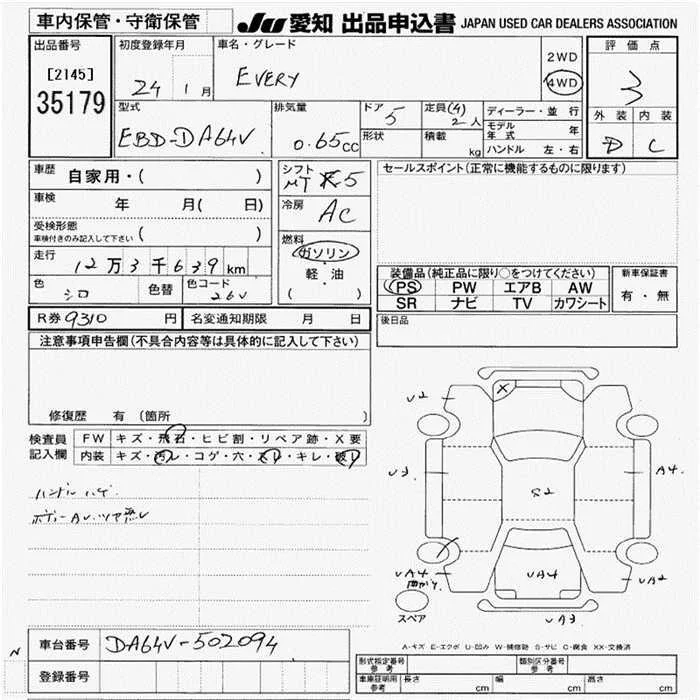 車内保管・守衛保管
JU 愛知 出品申込書 JAPAN USED CAR DEALERS ASSOCIATION
出品番号
[2145]
35179
初度登録年月
24 1月
車名・グレード
EVERY
2WD
4WD
評価点
3
外装 内装
D C
型式
EBD-DA64V
排気量
0.65cc
ドア
5
形状
定員(4)
2人
積載
kg
ディーラー・並行
モデル年式 年
ハンドル 左・右
車歴 自家用・( )
車検 年 月( 日)
受検形態
車検付きのみ記入して下さい ( )
走行
12万3千639km
色 シロ 色替 色コード 26V
シフト
MT 5
冷房
AC
燃料
ガソリン
軽・油
( )
セールスポイント(正常に機能するものに限ります)
装備品(純正品に限り○をつけてください)
PS PW エアB AW
SR ナビ TV カワシート
新車保証書
有・無
R券 9310円 名変通知期限 月 日
後日品
注意事項申告欄(不具合内容等は具体的に記入して下さい)
修復歴 有(箇所 )
検査員記入欄
FW キズ・飛石・ヒビ割・リペア跡・X要
内装 キズ・汚レ・コゲ・穴・スレ・キレ・破レ
ハンドル ハゲ
U2
X
U3
A4
S2
UA4
UA4
UA2
UA3
スペア
A-キズ E-エクボ U-凹み W-補修跡 S-サビ C-腐食 XX-交換済
N
車台番号 DA64V-502094
登録番号
形式指定番号参考 類別区分番号参考
車庫証明用参考 長さ cm 幅 cm 高さ cm